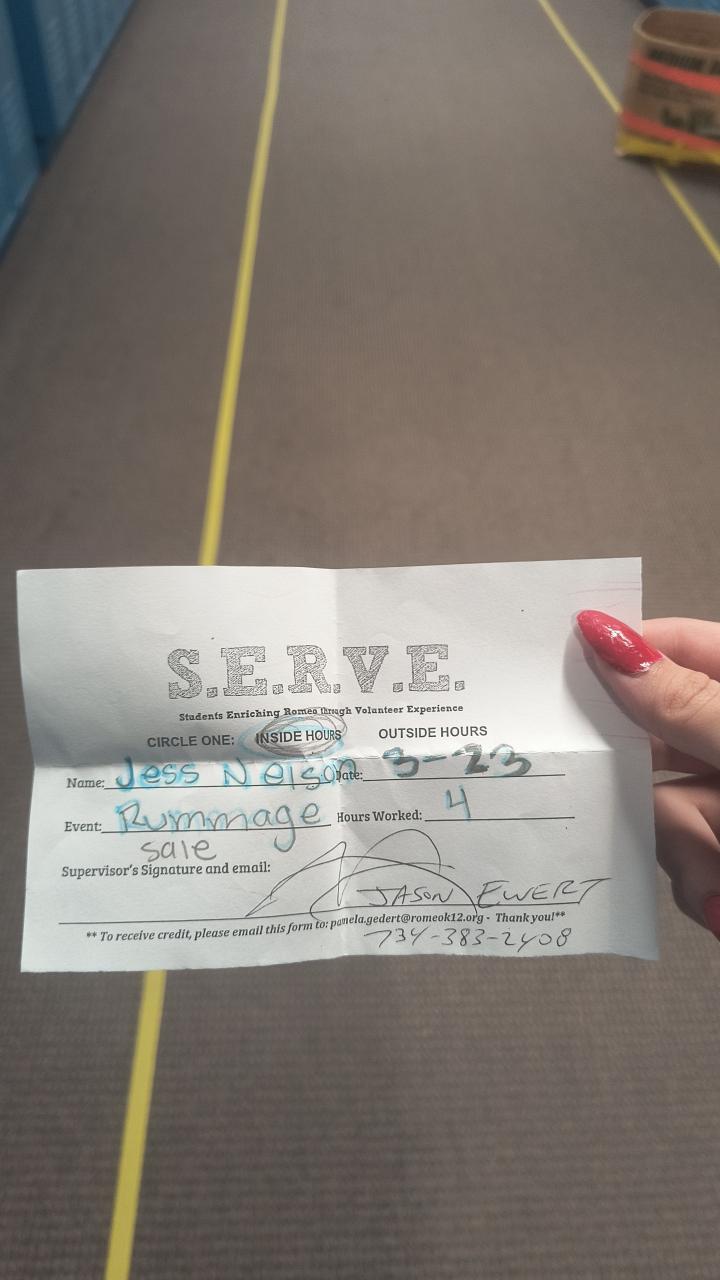 S.E.R.V.E.
Students Enriching Romeo through Volunteer Experience
CIRCLE ONE: INSIDE HOURS OUTSIDE HOURS
Name: Jess Nelson Date: 3-23
Event: Rummage Hours Worked: 4
sale
Supervisor's Signature and email:
JASON EWERT
** To receive credit, please email this form to: pamela.gedert@romeok12.org - Thank you!**
734-383-2408